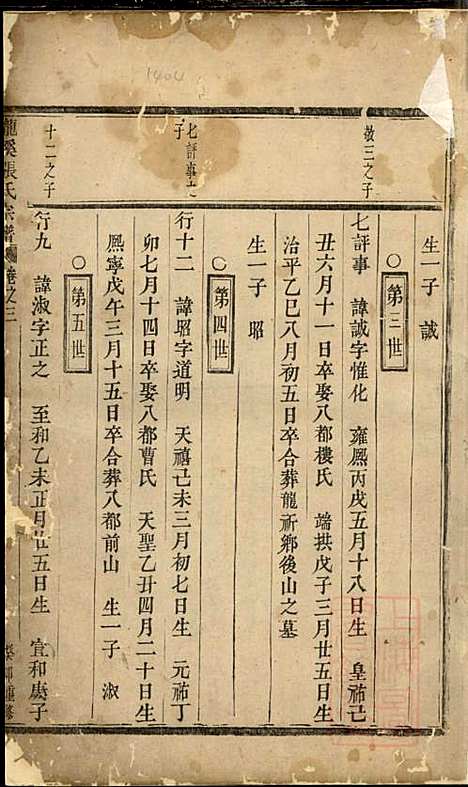 1404
敖三之子
七評事之子
十二之子
生一子　誠
○第三世
七評事　諱誠字惟化　雍熙丙戌五月十八日生　皇祐己
丑六月十一日卒娶八都樓氏　端拱戊子三月廿五日生
治平乙巳八月初五日卒合葬龍祈鄉後山之墓
生一子　昭
○第四世
行十二　諱昭字道明　天禧己未三月初七日生　元祐丁
卯七月十四日卒娶八都曹氏　天聖乙丑四月二十日生
熙寧戊午三月十五日卒合葬八都前山　生一子　淑
○第五世
行九　諱淑字正之　至和乙未正月廿五日生　宣和庚子
龍溪張氏宗譜　卷之三